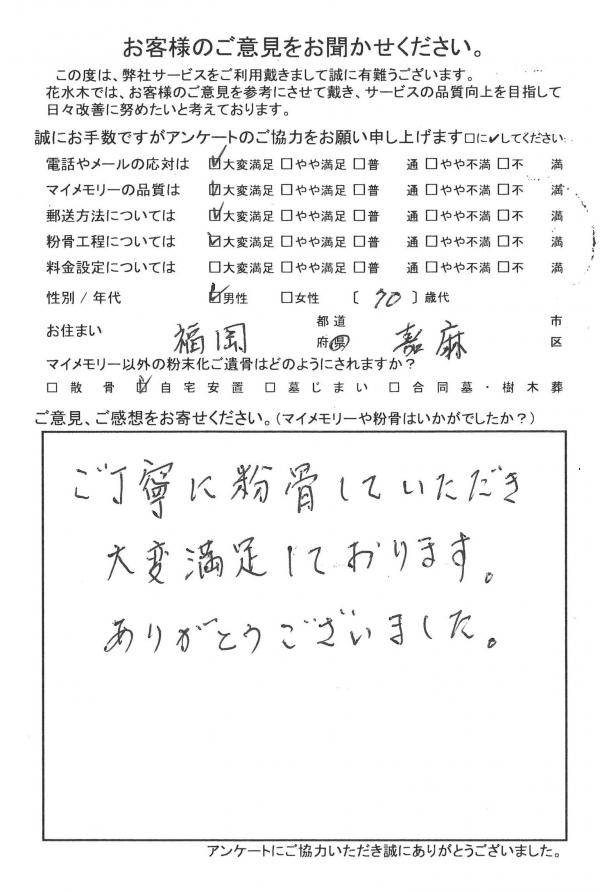 お客様のご意見をお聞かせください。
この度は、弊社サービスをご利用戴きまして誠に有難うございます。
花水木では、お客様のご意見を参考にさせて戴き、サービスの品質向上を目指して
日々改善に努めたいと考えております。
誠にお手数ですがアンケートのご協力をお願い申し上げます□に✓してください
電話やメールの応対は ☑大変満足 □やや満足 □普 通 □やや不満 □不 満
マイメモリーの品質は ☑大変満足 □やや満足 □普 通 □やや不満 □不 満
郵送方法については ☑大変満足 □やや満足 □普 通 □やや不満 □不 満
粉骨工程については ☑大変満足 □やや満足 □普 通 □やや不満 □不 満
料金設定については □大変満足 □やや満足 □普 通 □やや不満 □不 満
性別/年代 ☑男性 □女性 〔 70 〕歳代
お住まい 福岡 都道府県 嘉麻 市区
マイメモリー以外の粉末化ご遺骨はどのようにされますか？
□散骨 ☑自宅安置 □墓じまい □合同墓・樹木葬
ご意見、ご感想をお寄せください。(マイメモリーや粉骨はいかがでしたか？)
ご丁寧に粉骨していただき
大変満足しております。
ありがとうございました。
アンケートにご協力いただき誠にありがとうございました。